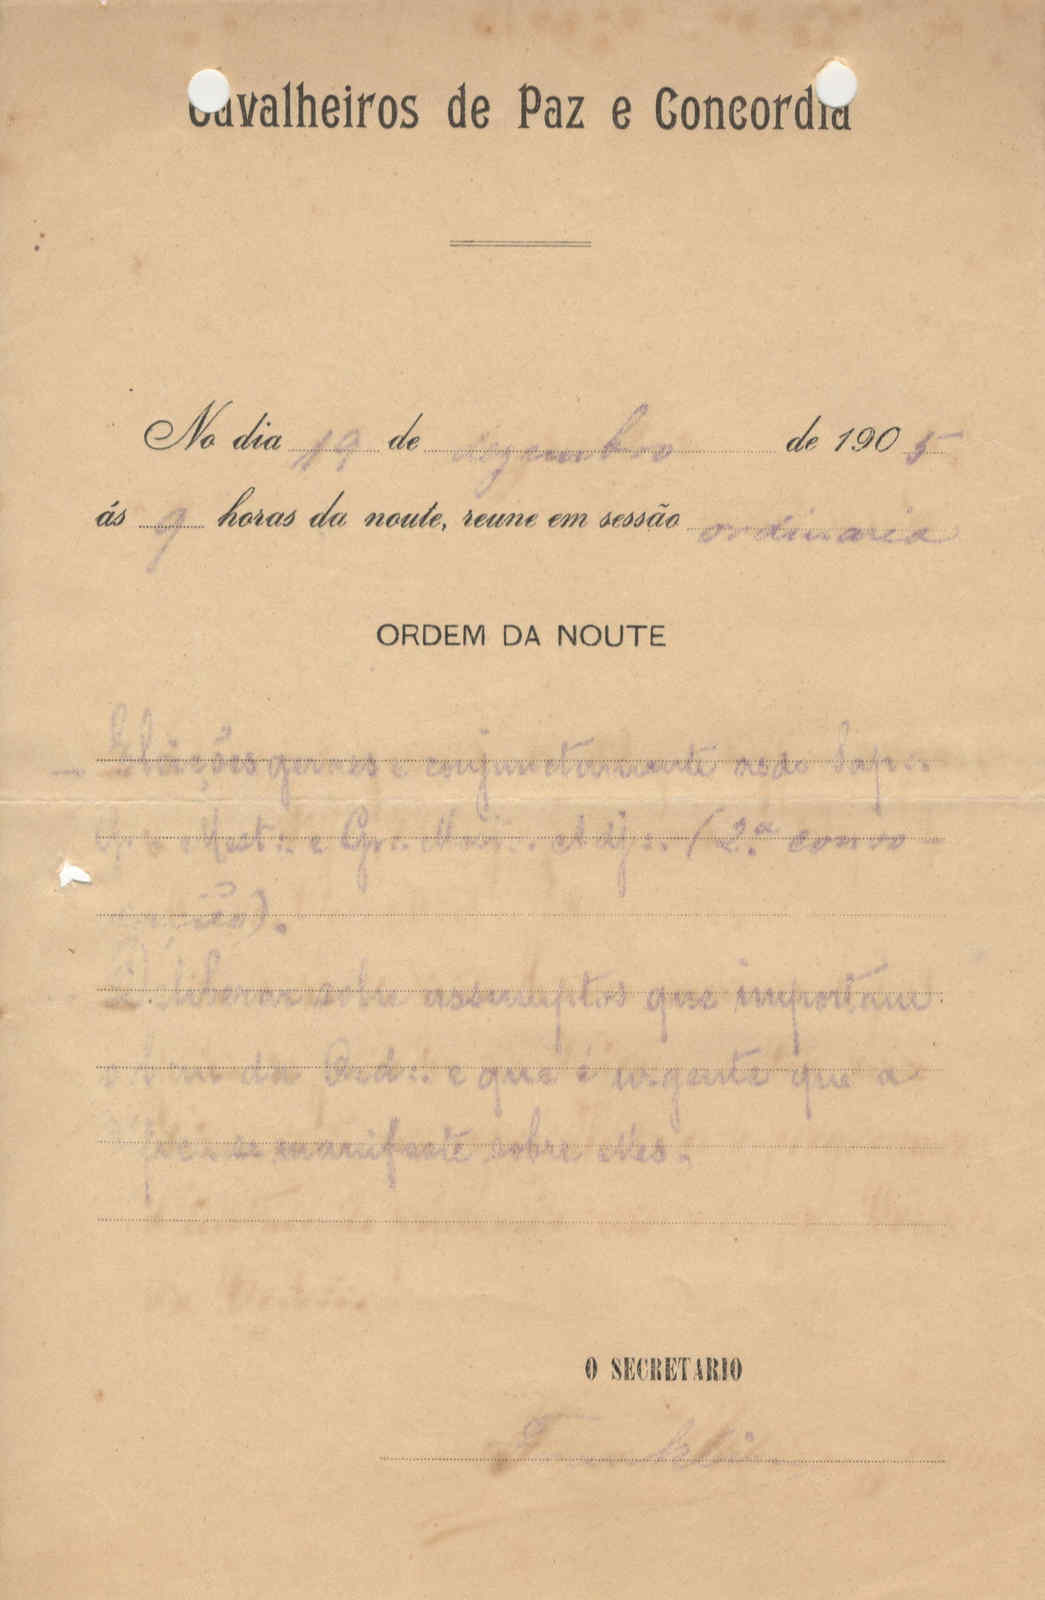 Cavalheiros de Paz e Concordia
No dia 19 de dezembro de 1905
ás 9 horas da noute, reune em sessão ordinaria
ORDEM DA NOUTE
— Eleições geraes e conjunctamente
Gr∴ Mest∴ e Gr∴ Adj∴ (2.ª convo-
cação).
Deliberar sobre assumptos que importam
da Ord∴ e que é urgente que a
se manifeste sobre elles.
O SECRETARIO
Franklin